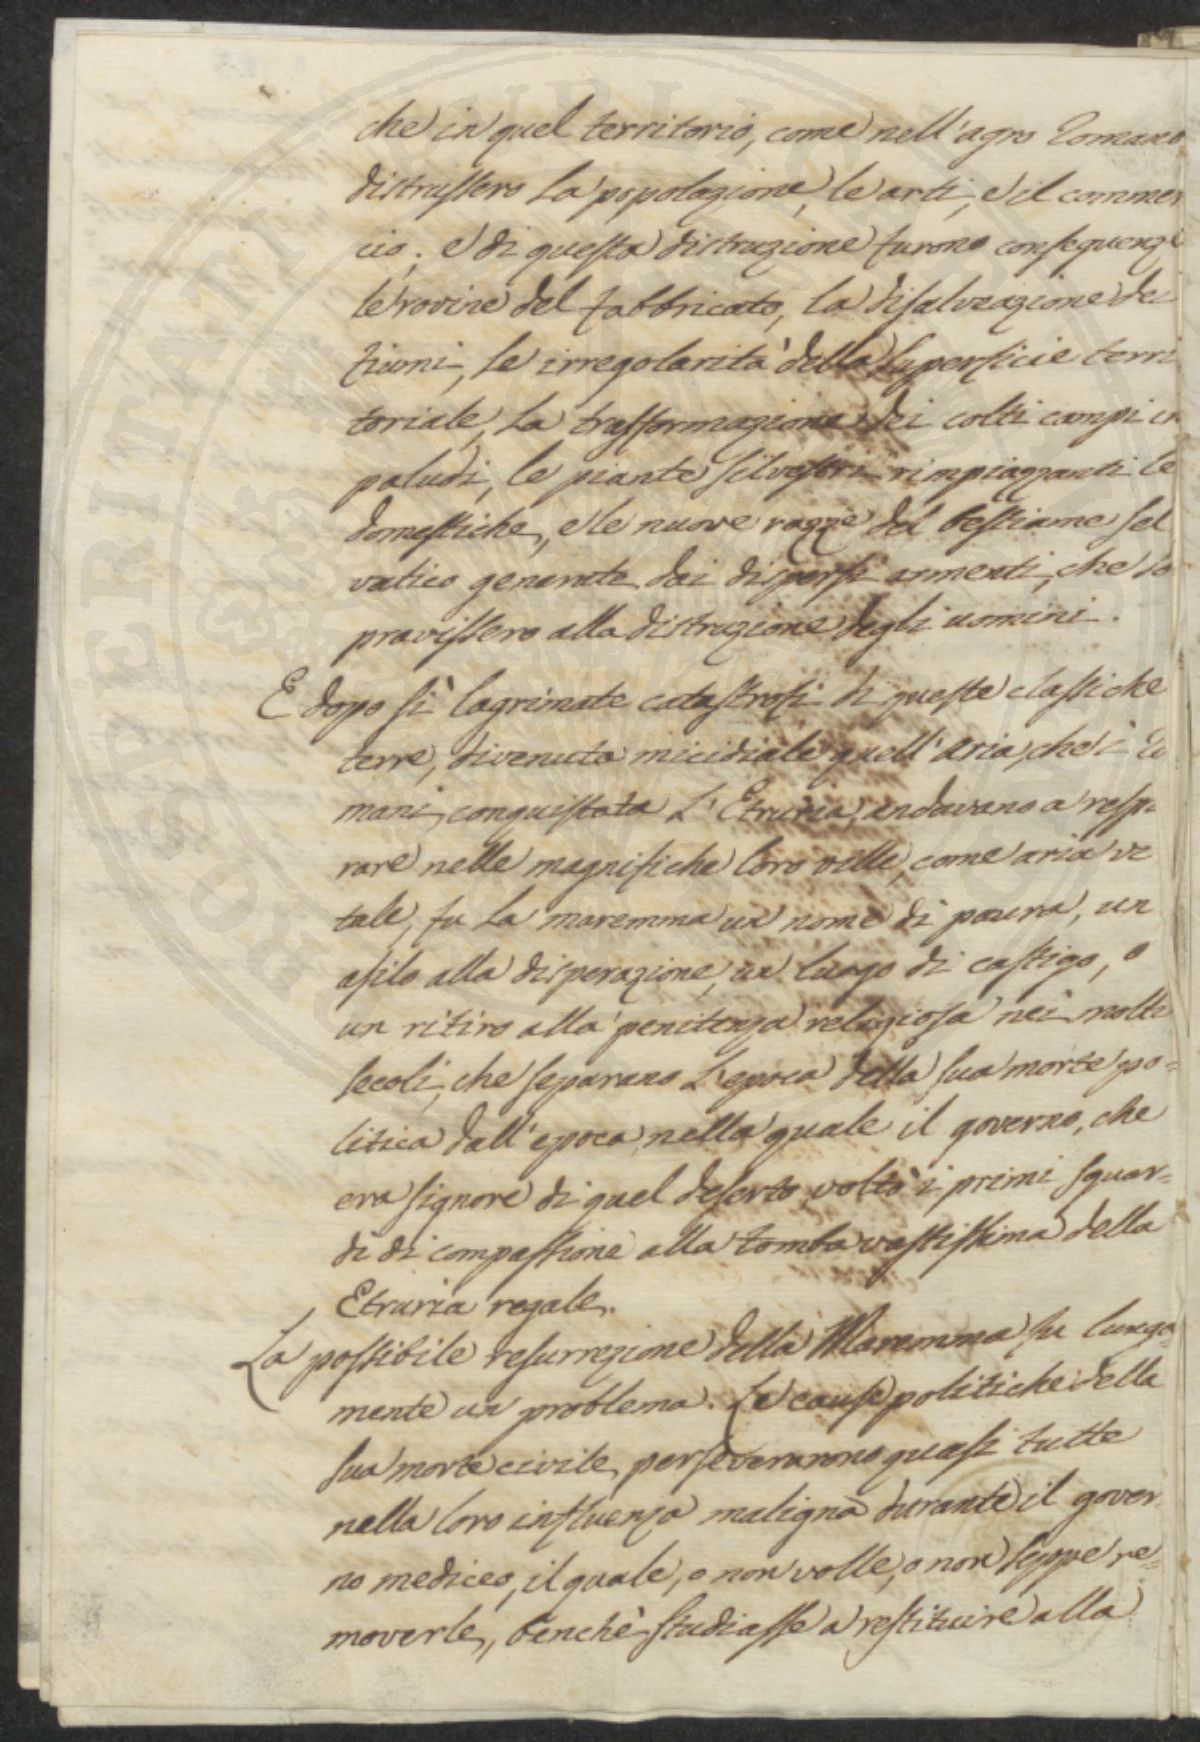 che in quel territorio, come nell'agro Romano
distrussero la popolazione, le arti, e il commer
cio; e di questa distruzione furono conseguenze
le rovine del fabbricato, la disalveazione dei
fiumi, le irregolarità della superficie terri
toriale, la trasformazione dei colti campi in
paludi, le piante silvestri rimpiazzanti le
domestiche, e le nuove razze del bestiame sel
vatico generate dai dispersi armenti, che so
pravissero alla distruzione degli uomini.
E dopo sì lagrimate catastrofi di queste classiche
terre, divenuta micidiale quell'aria, che i Ro
mani, conquistata l'Etruria, andavano a respi
rare nelle magnifiche loro ville, come aria vi
tale, fu la maremma un nome di paura, un
asilo alla disperazione, un luogo di castigo, o
un ritiro alla penitenza religiosa nei molti
secoli, che separano l'epoca della sua morte po=
litica dall'epoca, nella quale il governo, che
era signore di quel deserto, voltò i primi sguar=
di di compassione alla tomba vastissima della
Etruria regale.
La possibile resurrezione della Maremma fu lunga=
mente un problema. Le cause politiche della
sua morte civile, perseverarono quasi tutte
nella loro influenza maligna durante il gover
no mediceo, il quale, o non volle, o non seppe re=
moverle, benchè studiasse a restituire alla
PROSPERITATI PUBLICAE